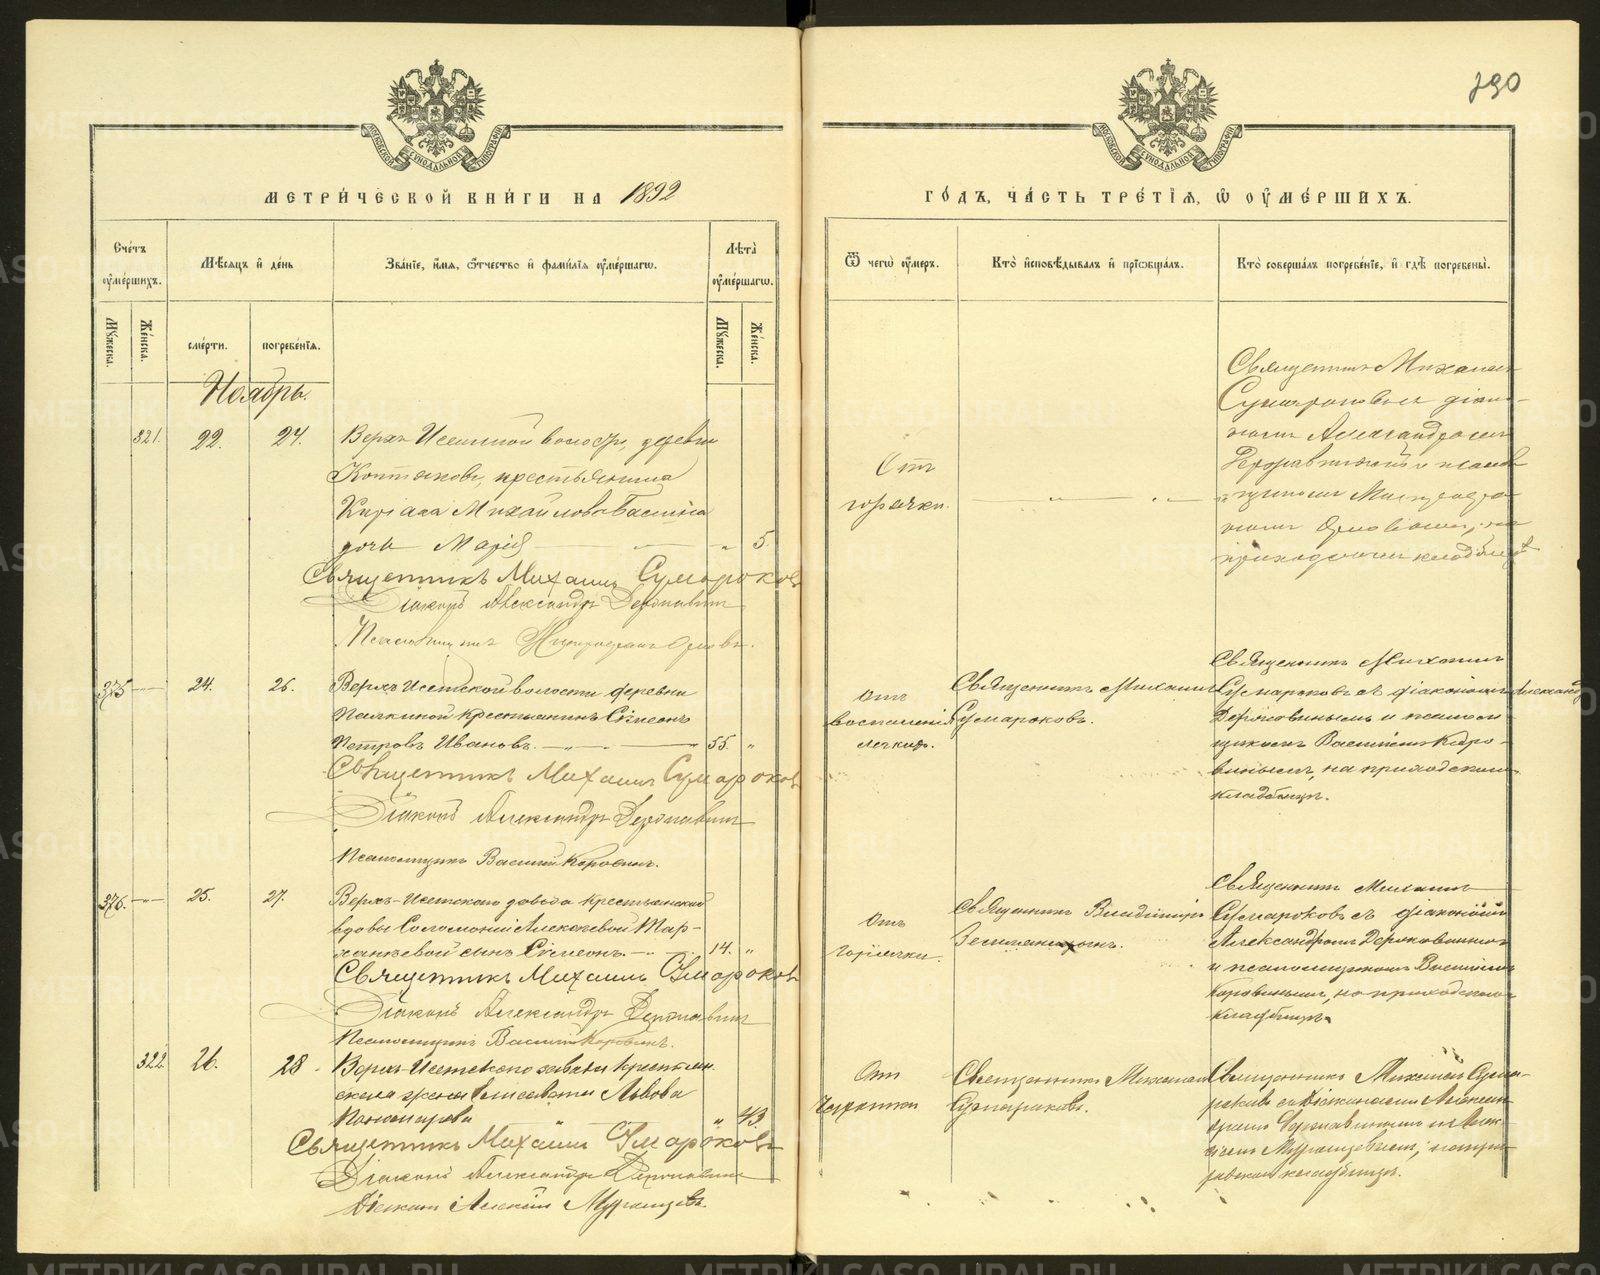 790
МОСКОВСКОЙ СѴНОДАЛЬНОЙ ТИПОГРАФІИ
МОСКОВСКОЙ СѴНОДАЛЬНОЙ ТИПОГРАФІИ
МЕТРИ́ЧЕСКОЙ КНИ́ГИ НА 1892
ГО́ДЪ, ЧА́СТЬ ТРЕ́ТІѦ, Ѡ҆ ОУ҆МЕ́РШИХЪ.
Сче́тъ оу҆ме́ршихъ.
Мѣ́сѧцъ и҆ де́нь
Зва́нїе, и҆́мѧ, ѻ҆́тчество и҆ фами́лїѧ оу҆ме́ршагѡ.
Лѣта̀ оу҆ме́ршагѡ.
Ѿ чегѡ̀ оу҆́меръ.
Кто̀ и҆сповѣ́дывалъ и҆ прїѡбща́лъ.
Кто̀ соверша́лъ погребе́нїе, и҆ гдѣ̀ погребены̀.
Мꙋ́жеска.
Же́нска.
сме́рти.
погребе́нїѧ.
Мꙋ́жеска.
Же́нска.
Ноябрь.
321. 22. 24. Верхъ Исетской волости, деревни
крестьянина
Михайлова
дочь Марія " 5.
Священникъ Михаилъ Сумароковъ
Діаконъ Александръ Державинъ
Псаломщикъ Орловъ.
Отъ
горячки.
Священникъ Михаилъ
Сумароковъ съ діако-
номъ Александромъ
Державинымъ и псалом-
щикомъ
Орловымъ, на
приходскомъ кладбищѣ
375 24. 26. Верхъ Исетской волости деревни
Палкиной крестьянинъ Сѵмеонъ
Петровъ Ивановъ. 55. "
Священникъ Михаилъ Сумароковъ
Діаконъ Александръ Державинъ
Псаломщикъ Василій Коровинъ.
Отъ
воспаленія
легкихъ.
Священникъ Михаилъ
Сумароковъ.
Священникъ Михаилъ
Сумароковъ съ діакономъ Александ
Державинымъ и псалом-
щикомъ Василіемъ Коро-
винымъ, на приходскомъ
кладбищѣ.
376. 25. 27. Верхъ-Исетскаго завода крестьянской
вдовы Соломоніи Алексѣевой Тар-
ханѣевой сынъ Сѵмеонъ. 14. "
Священникъ Михаилъ Сумароковъ
Діаконъ Александръ Державинъ
Псаломщикъ Василій Коровинъ.
Отъ
горячки.
Священникъ Владиміръ
Земляницынъ.
Священникъ Михаилъ
Сумароковъ съ діакономъ
Александромъ Державинымъ
и псаломщикомъ Василіемъ
Коровинымъ, на приходскомъ
кладбищѣ.
322. 26. 28. Верхъ-Исетскаго завода крестьян-
ская жена Елисавета Львова
Пономарева " 43.
Священникъ Михаилъ Сумароковъ
Діаконъ Александръ Державинъ
Діаконъ Алексій Мурашевъ.
Отъ
чахотки
Священникъ Михаилъ
Сумароковъ.
Священникъ Михаилъ Сума-
роковъ съ діаконами Алексан-
дромъ Державинымъ и Алек-
сіемъ Мурашевымъ, на при-
ходскомъ кладбищѣ.
METRIKI.GASO-URAL.RU